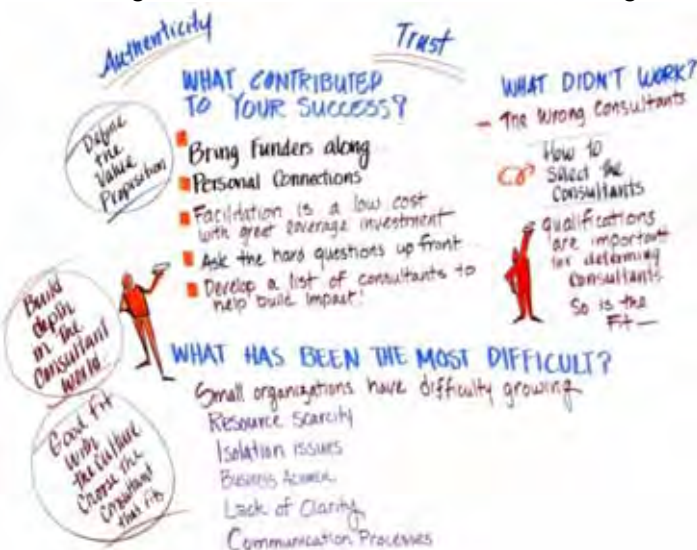 Authenticity
Trust
WHAT CONTRIBUTED
TO YOUR SUCCESS?
Define
the
Value
Proposition
Bring Funders along
Personal Connections
Facilitation is a low cost
with great leverage investment
Ask the hard questions up front
Develop a list of consultants to
help build impact!
WHAT DIDN'T WORK?
- The Wrong Consultants
How to
Select the
Consultants
Qualifications
are important
for determing
Consultants
So is the
Fit—
Build
depth
in the
Consultant
world
WHAT HAS BEEN THE MOST DIFFICULT?
Small organizations have difficulty growing
Resource scarcity
Isolation issues
Business Acumen
Lack of Clarity
Communication Processes
Good fit
with
the culture
Choose the
Consultant
that fits